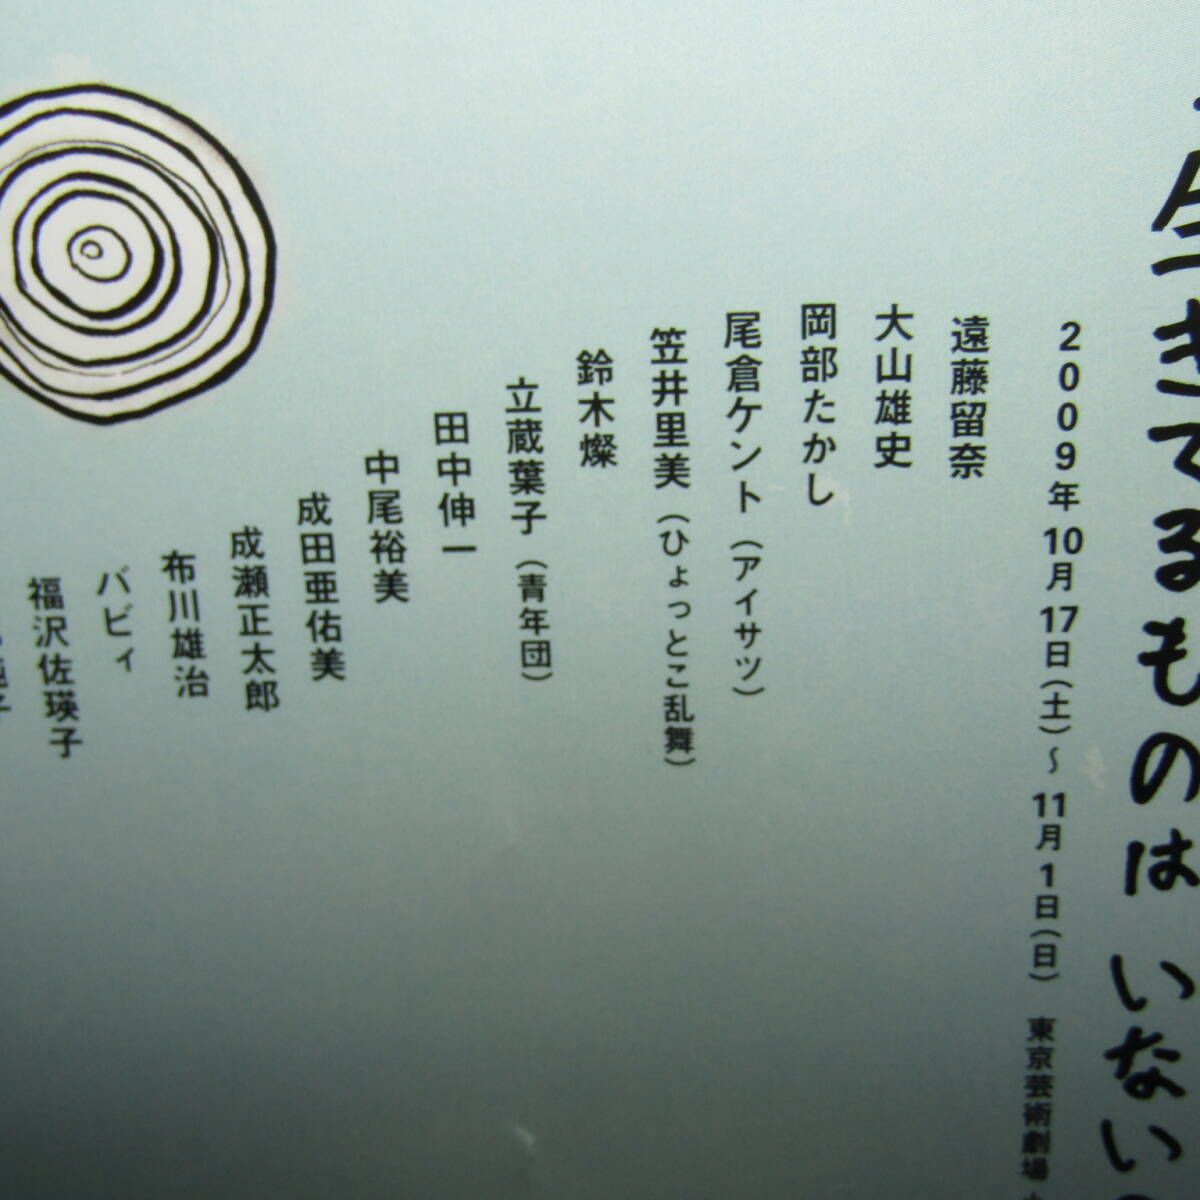 生きてるものは いない
2009年10月17日(土)～11月1日(日) 東京芸術劇場
遠藤留奈
大山雄史
岡部たかし
尾倉ケント(アイサツ)
笠井里美(ひょっとこ乱舞)
鈴木燦
立蔵葉子(青年団)
田中伸一
中尾裕美
成田亜佑美
成瀬正太郎
布川雄治
バビィ
福沢佐瑛子